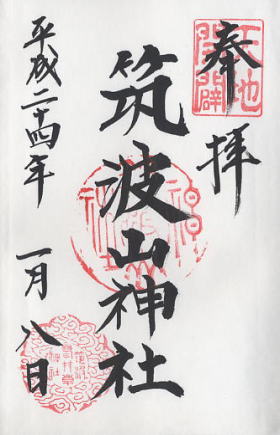 奉拝
天地開闢
筑波山神社
平成二十四年
一月八日